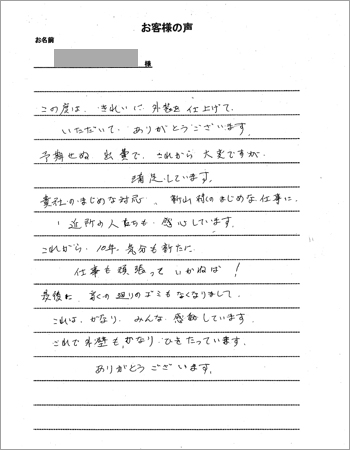 お客様の声
お名前
様
この度は、きれいに外装を仕上げて、
いただいて ありがとうございます。
予期せぬ 出費で、これから 大変ですが
満足しています。
貴社のまじめな対応。新山様のまじめな仕事に、
近所の人たちも、感心しています。
これから、10年、気分も新たに
仕事も頑張って いかねば!
最後に、家の廻りのゴミもなくなりまして、
これは、かなり、みんな、感動しています。
これで外壁も、かなり、ひきたっています。
ありがとうございます。